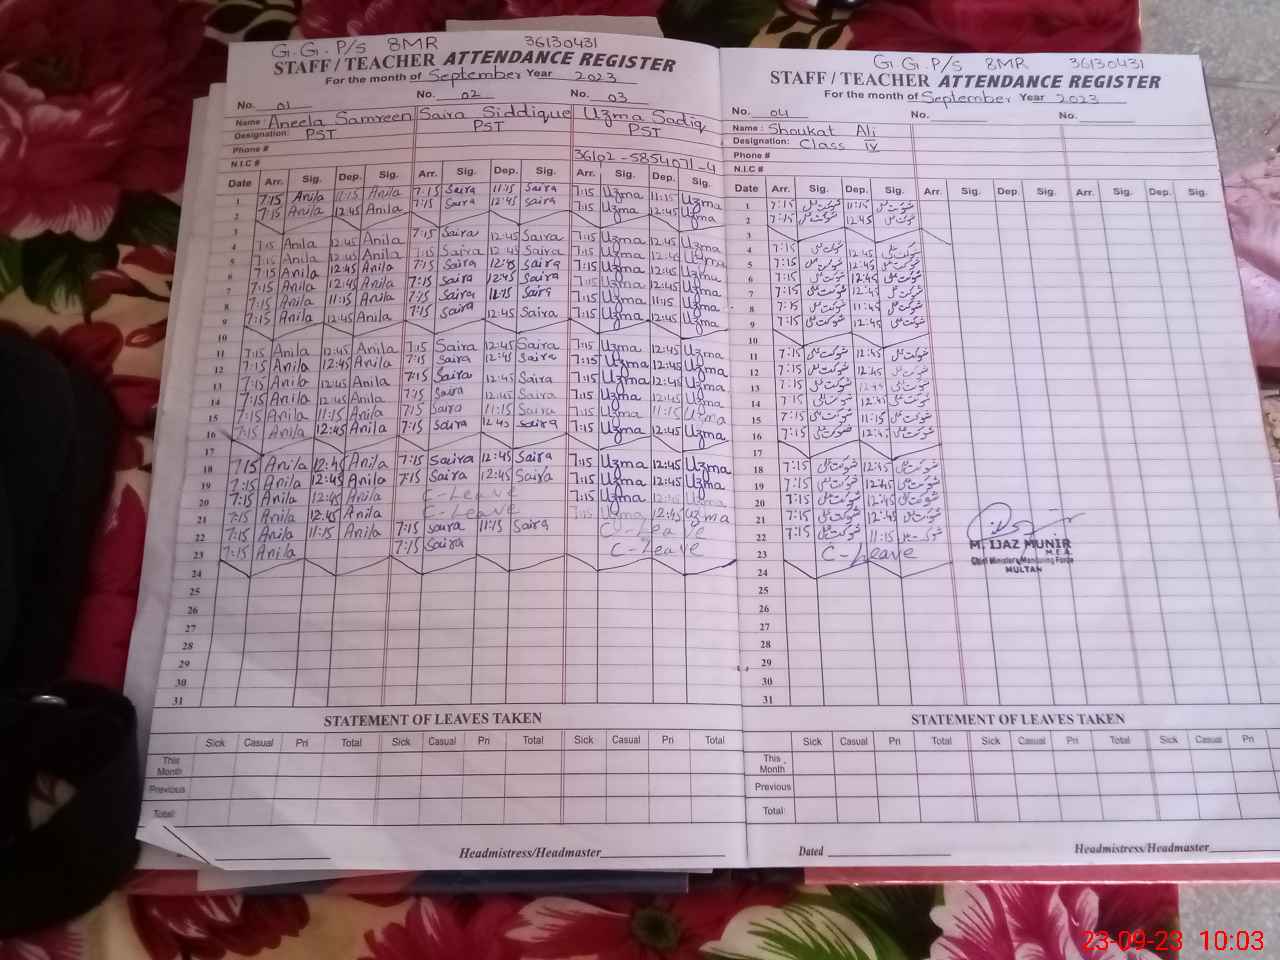 G.G. P/S 8MR 36130431
STAFF/TEACHER ATTENDANCE REGISTER
For the month of September Year 2023
No. 01 No. 02 No. 03
Name: Aneela Samreen Saira Siddique Uzma Sadiq
Designation: PST PST PST
Phone #
N.I.C # 36102-5854071-4
Date Arr. Sig. Dep. Sig. Arr. Sig. Dep. Sig. Arr. Sig. Dep. Sig.
1 7:15 Anila 11:15 Anila 7:15 Saira 11:15 Saira 7:15 Uzma 11:15 Uzma
2 7:15 Anila 12:45 Anila 7:15 Saira 12:45 Saira 7:15 Uzma 12:45 Uzma
3
4 7:15 Anila 12:45 Anila 7:15 Saira 12:45 Saira 7:15 Uzma 12:45 Uzma
5 7:15 Anila 12:45 Anila 7:15 Saira 12:45 Saira 7:15 Uzma 12:45 Uzma
6 7:15 Anila 12:45 Anila 7:15 Saira 12:45 Saira 7:15 Uzma 12:45 Uzma
7 7:15 Anila 12:45 Anila 7:15 Saira 12:45 Saira 7:15 Uzma 12:45 Uzma
8 7:15 Anila 11:15 Anila 7:15 Saira 11:15 Saira 7:15 Uzma 11:15 Uzma
9 7:15 Anila 12:45 Anila 7:15 Saira 12:45 Saira 7:15 Uzma 12:45 Uzma
10
11 7:15 Anila 12:45 Anila 7:15 Saira 12:45 Saira 7:15 Uzma 12:45 Uzma
12 7:15 Anila 12:45 Anila 7:15 Saira 12:45 Saira 7:15 Uzma 12:45 Uzma
13 7:15 Anila 12:45 Anila 7:15 Saira 12:45 Saira 7:15 Uzma 12:45 Uzma
14 7:15 Anila 12:45 Anila 7:15 Saira 12:45 Saira 7:15 Uzma 12:45 Uzma
15 7:15 Anila 11:15 Anila 7:15 Saira 11:15 Saira 7:15 Uzma 11:15 Uzma
16 7:15 Anila 12:45 Anila 7:15 Saira 12:45 Saira 7:15 Uzma 12:45 Uzma
17
18 7:15 Anila 12:45 Anila 7:15 Saira 12:45 Saira 7:15 Uzma 12:45 Uzma
19 7:15 Anila 12:45 Anila 7:15 Saira 12:45 Saira 7:15 Uzma 12:45 Uzma
20 7:15 Anila 12:45 Anila C-Leave 7:15 Uzma 12:45 Uzma
21 7:15 Anila 12:45 Anila C-Leave 7:15 Uzma 12:45 Uzma
22 7:15 Anila 11:15 Anila 7:15 Saira 11:15 Saira C-Leave
23 7:15 Anila 7:15 Saira C-Leave
24
25
26
27
28
29
30
31
STATEMENT OF LEAVES TAKEN
Sick Casual Pri Total Sick Casual Pri Total Sick Casual Pri Total
This Month
Previous
Total:
Headmistress/Headmaster
G.G.P/S 8MR 36130431
STAFF/TEACHER ATTENDANCE REGISTER
For the month of September Year 2023
No. 04 No. No.
Name: Shoukat Ali
Designation: Class IV
Phone #
N.I.C #
Date Arr. Sig. Dep. Sig. Arr. Sig. Dep. Sig. Arr. Sig. Dep. Sig.
1 7:15 شوکت علی 11:15 شوکت علی
2 7:15 شوکت علی 12:45 شوکت علی
3
4 7:15 شوکت علی 12:45 شوکت علی
5 7:15 شوکت علی 12:45 شوکت علی
6 7:15 شوکت علی 12:45 شوکت علی
7 7:15 شوکت علی 12:45 شوکت علی
8 7:15 شوکت علی 11:45 شوکت علی
9 7:15 شوکت علی 12:45 شوکت علی
10
11 7:15 شوکت علی 12:45 شوکت علی
12 7:15 شوکت علی 12:45 شوکت علی
13 7:15 شوکت علی 12:45 شوکت علی
14 7:15 شوکت علی 12:45 شوکت علی
15 7:15 شوکت علی 11:15 شوکت علی
16 7:15 شوکت علی 12:45 شوکت علی
17
18 7:15 شوکت علی 12:45 شوکت علی
19 7:15 شوکت علی 12:45 شوکت علی
20 7:15 شوکت علی 12:45 شوکت علی
21 7:15 شوکت علی 12:45 شوکت علی
22 7:15 شوکت علی 11:15 شوکت علی
23 C-Leave
24
25
26
27
28
29
30
31
M. IJAZ MUNIR
M.E.A.
Chief Minister's Monitoring Force
MULTAN
STATEMENT OF LEAVES TAKEN
Sick Casual Pri Total Sick Casual Pri Total Sick Casual Pri
This Month
Previous
Total:
Dated Headmistress/Headmaster
23-09-23 10:03